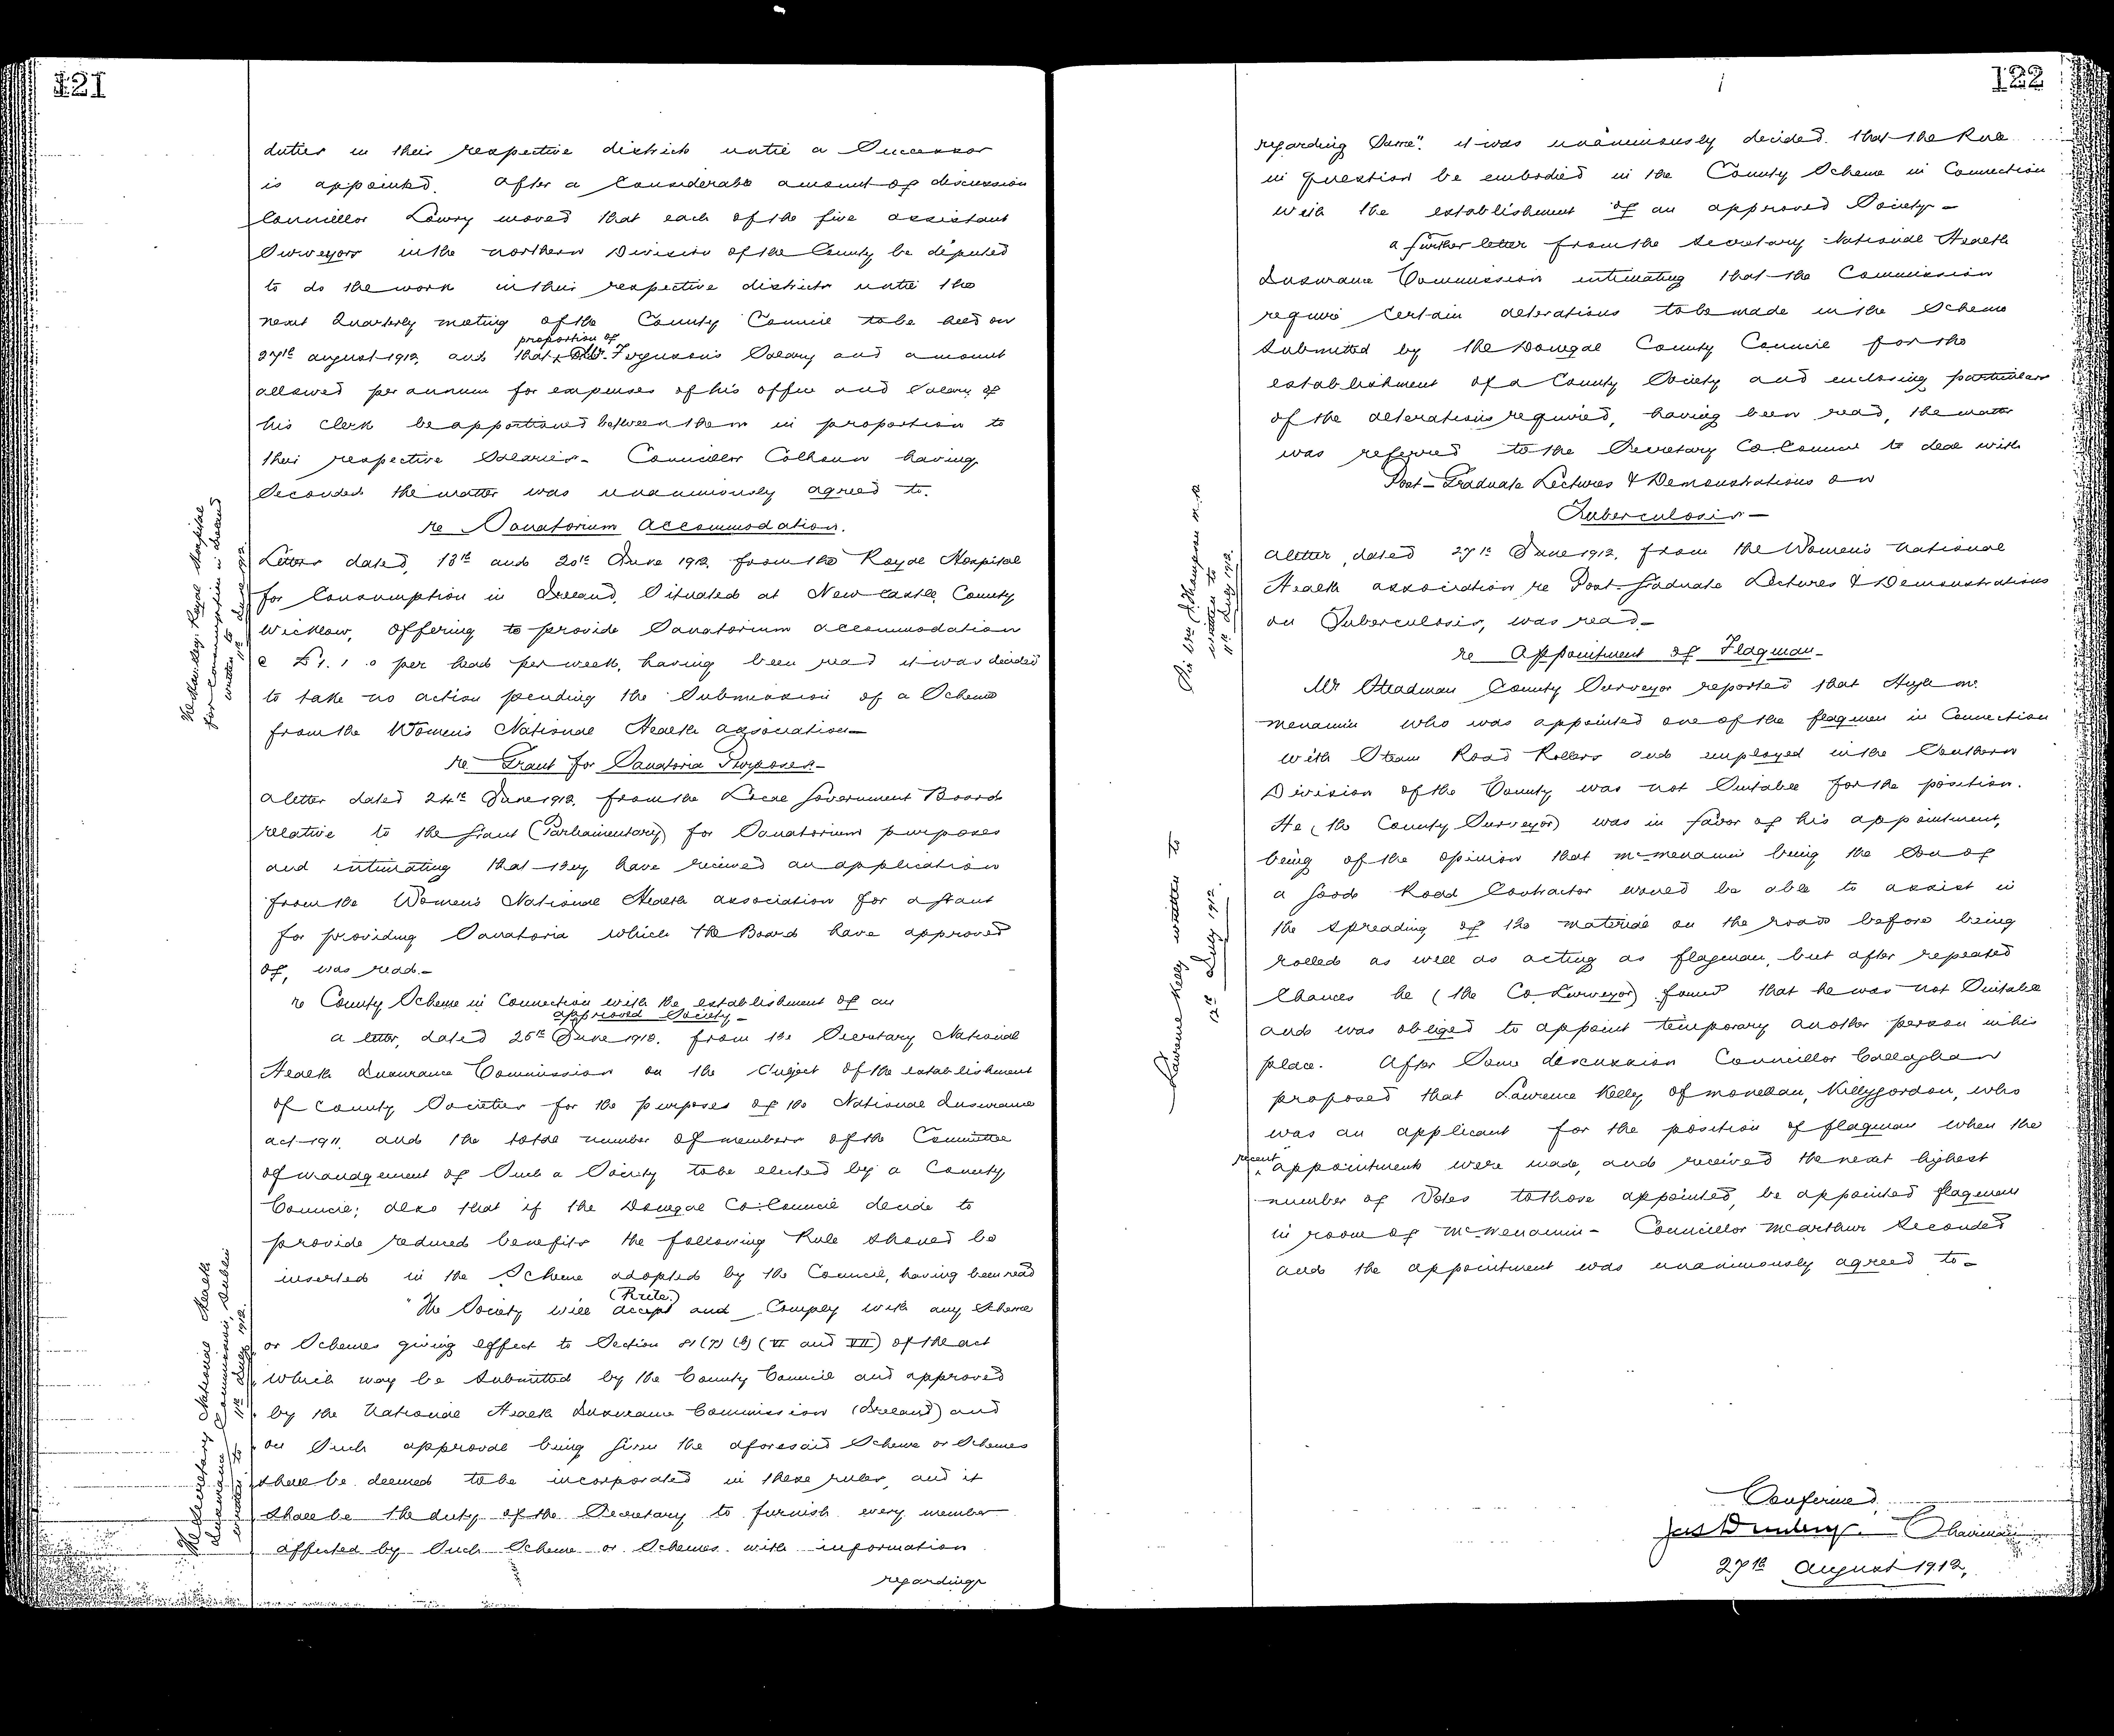 121
duties in their respective districts until a Successor
is appointed. After a Considerable amount of discussion
Councillor Lowry moved that each of the five assistant
Surveyors in the northern Division of the County be deputed
to do the work in their respective districts until the
next Quarterly meeting of the County Council to be held on
proportion of
27th august 1912, and that Mr. Ferguson's Salary and amount
allowed per annum for expenses of his office and Salary of
his clerk be apportioned between them in proportion to
their respective Salaries - Councillor Colhoun having
Seconded the matter was unanimously agreed to.
re Sanatorium Accommodation.
The Handley, Royal Hospital
for Consumption in Ireland
written to
11th July 1912.
Letters dated, 13th and 20th June 1912, from the Royal Hospital
for Consumption in Ireland, Situated at New Castle, County
Wicklow, offering to provide Sanatorium accommodation
@ £1. 1. 0 per head per week, having been read it was decided
to take no action pending the Submission of a Scheme
from the Women's National Health association -
re Grant for Sanatoria Purposes -
a letter dated 24th June 1912, from the Local Government Board
relative to the Grant (Parliamentary) for Sanatorium purposes
and intimating that they have received an application
from the Women's National Health association for a Grant
for providing Sanatoria which the Board have approved
of, was read. -
re County Scheme in Connection with the establishment of an
approved Society -
a letter, dated 25th June 1912. from the Secretary National
Health Insurance Commission on the Subject of the establishment
of County Societies for the purposes of the National Insurance
act 1911, and the total number of members of the Committee
of management of Such a Society to be elected by a County
Council; also that if the Donegal Co. Council decide to
provide reduced benefits the following Rule should be
inserted in the Scheme adopted by the Council, having been read
(Rule)
The Secretary National Health
Insurance Commission, Dublin
written to
11th July 1912.
"The Society will accept and Comply with any Scheme
or Schemes giving effect to Section 81 (7) (b) (VI and VII) of the act
which may be Submitted by the County Council and approved
by the National Health Insurance Commission (Ireland) and
on Such approval being given the aforesaid Scheme or Schemes
shall be deemed to be incorporated in these rules, and it
shall be the duty of the Secretary to furnish every member
affected by Such Scheme or Schemes with information
regarding
122
regarding Same". it was unanimously decided that the Rule
in Question be embodied in the County Scheme in Connection
with the establishment of an approved Society -
a further letter from the Secretary National Health
Insurance Commission intimating that the Commission
require Certain alterations to be made in the Scheme
Submitted by the Donegal County Council for the
establishment of a County Society and enclosing particulars
of the alterations required, having been read, the matter
was referred to the Secretary Co. Council to deal with
Post-Graduate Lectures & Demonstrations on
Tuberculosis -
written to
11th July 1912.
a letter, dated 27th June 1912, from the Women's National
Health association re Post-Graduate Lectures & Demonstrations
on Tuberculosis, was read -
re Appointment of Flagman -
Mr Steadman County Surveyor reported that Hugh Mc
menamin who was appointed one of the flagmen in Connection
with Steam Road Rollers and employed in the Southern
Division of the County was not Suitable for the position.
He (the County Surveyor) was in favor of his appointment,
being of the opinion that McMenamin being the Son of
a Good Road Contractor would be able to assist in
the Spreading of the material on the roads before being
rolled as well as acting as flagman, but after repeated
Chances he (the Co. Surveyor) found that he was not Suitable
and was obliged to appoint temporary another person in his
Lawrence Kelly written to
12th July 1912.
place. After Some discussion Councillor Callaghan
proposed that Lawrence Kelly of Monellan, Killygordon, who
was an applicant for the position of flagman when the
recent appointments were made, and received the next highest
number of Votes to those appointed, be appointed flagman
in room of McMenamin - Councillor McArthur Seconded
and the appointment was unanimously agreed to -
Confirmed.
Chairman
27th August 1912.